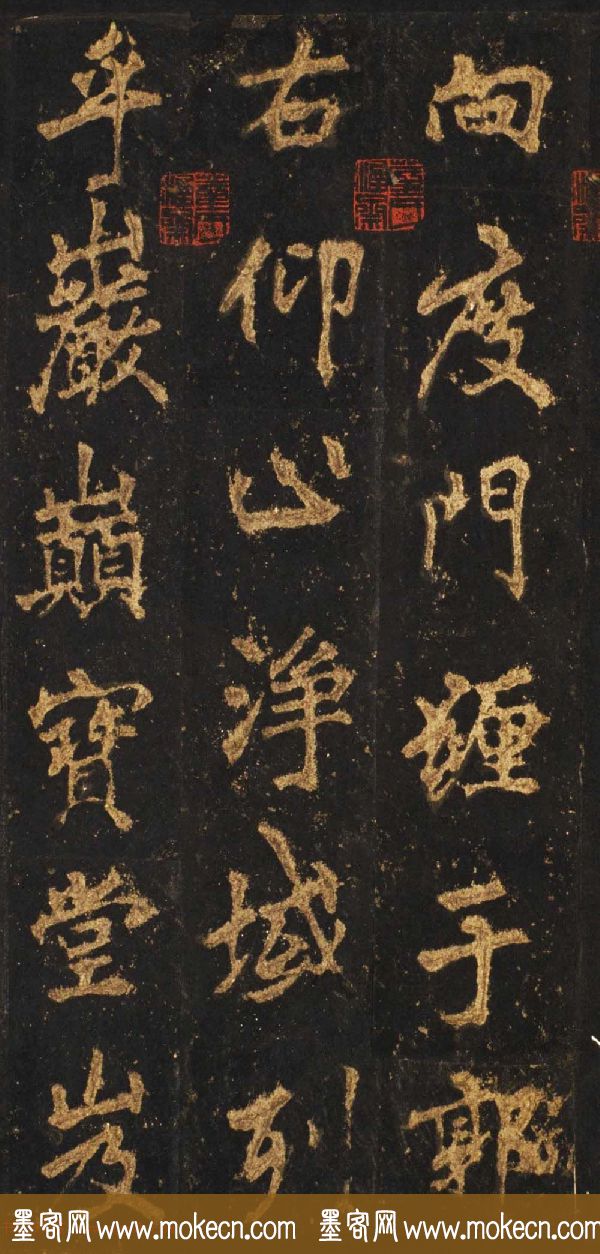 向度門纒于郭
右仰止淨域列
乎巖巔寶堂岌
墨客网 www.mokecn.com 墨客网 www.mokecn.com